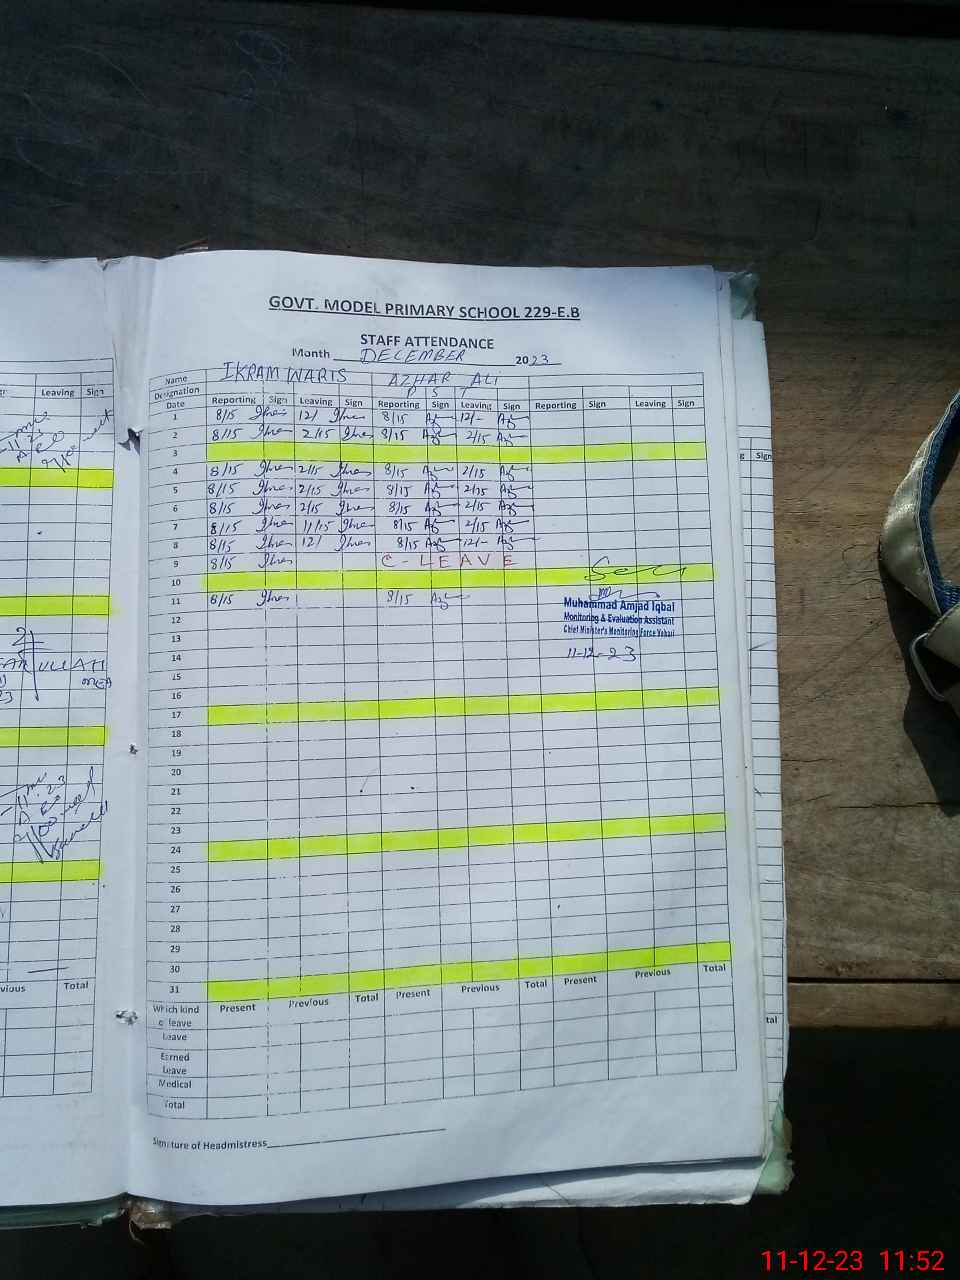 GOVT. MODEL PRIMARY SCHOOL 229-E.B
STAFF ATTENDANCE
Month DECEMBER 2023
Name IKRAM WARIS AZHAR ALI
Designation P S T
Date Reporting Sign Leaving Sign Reporting Sign Leaving Sign Reporting Sign Leaving Sign
1 8/15 12/ 8/15 12/-
2 8/15 2/15 8/15 2/15
3
4 8/15 2/15 8/15 2/15
5 8/15 2/15 8/15 2/15
6 8/15 2/15 8/15 2/15
7 8/15 11/15 8/15 2/15
8 8/15 12/ 8/15 12/-
9 8/15 C-LEAVE
10
11 8/15 8/15
Muhammad Amjad Iqbal
Monitoring & Evaluation Assistant
Chief Minister's Monitoring Force Vehari
11-12-23
12
13
14
15
16
17
18
19
20
21
22
23
24
25
26
27
28
29
30
31
Which kind of leave Present Previous Total Present Previous Total Present Previous Total
Leave
Earned Leave
Medical
Total
Signature of Headmistress
Leaving Sign
Total
Sign
11-12-23 11:52